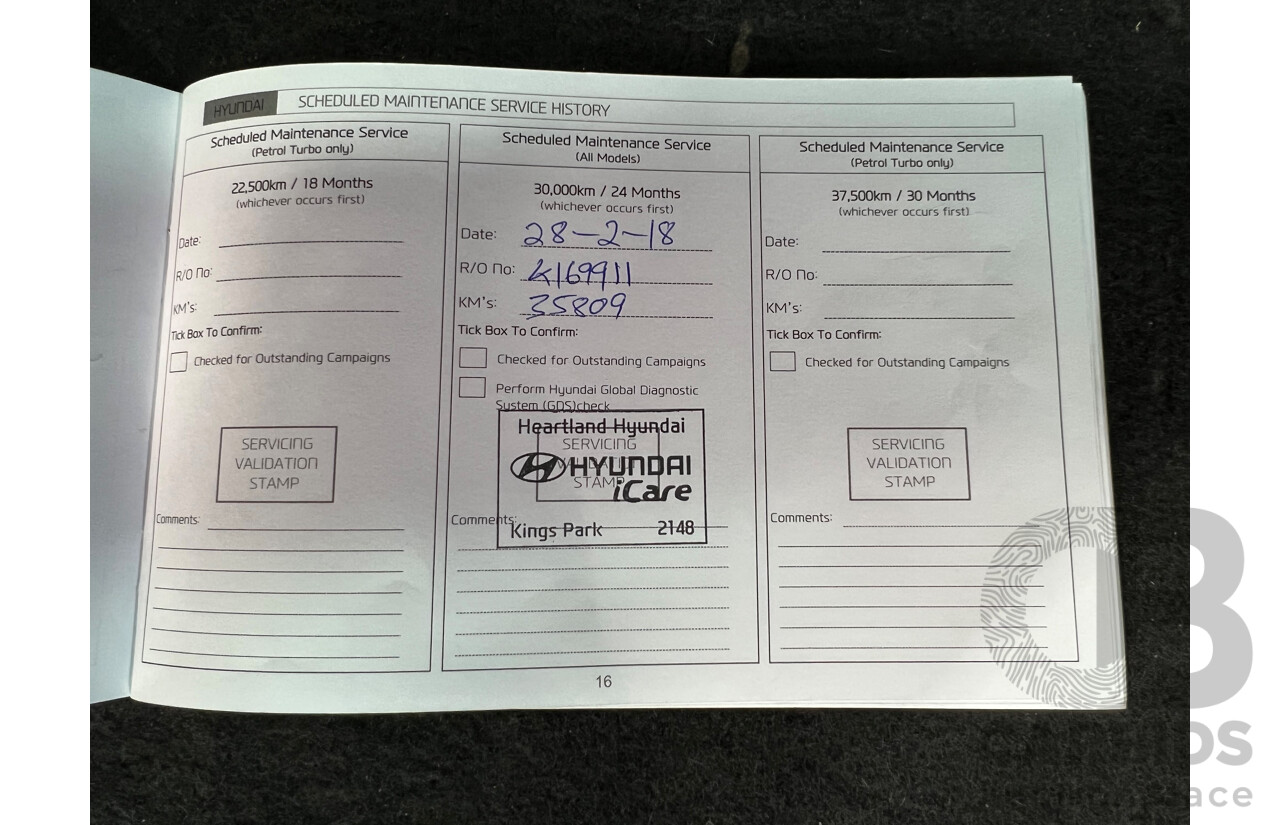 HYUNDAI SCHEDULED MAINTENANCE SERVICE HISTORY
Scheduled Maintenance Service
(Petrol Turbo only)
22,500km / 18 Months
(whichever occurs first)
Date:
R/O No:
KM's:
Tick Box To Confirm:
Checked for Outstanding Campaigns
SERVICING
VALIDATION
STAMP
Comments:
Scheduled Maintenance Service
(All Models)
30,000km / 24 Months
(whichever occurs first)
Date: 28-2-18
R/O No: 4169911
KM's: 35809
Tick Box To Confirm:
Checked for Outstanding Campaigns
Perform Hyundai Global Diagnostic
System (GDS)check
Heartland Hyundai
SERVICING
VALIDATION
STAMP
HYUNDAI
iCare
Comments:
Kings Park 2148
Scheduled Maintenance Service
(Petrol Turbo only)
37,500km / 30 Months
(whichever occurs first)
Date:
R/O No:
KM's:
Tick Box To Confirm:
Checked for Outstanding Campaigns
SERVICING
VALIDATION
STAMP
Comments:
16